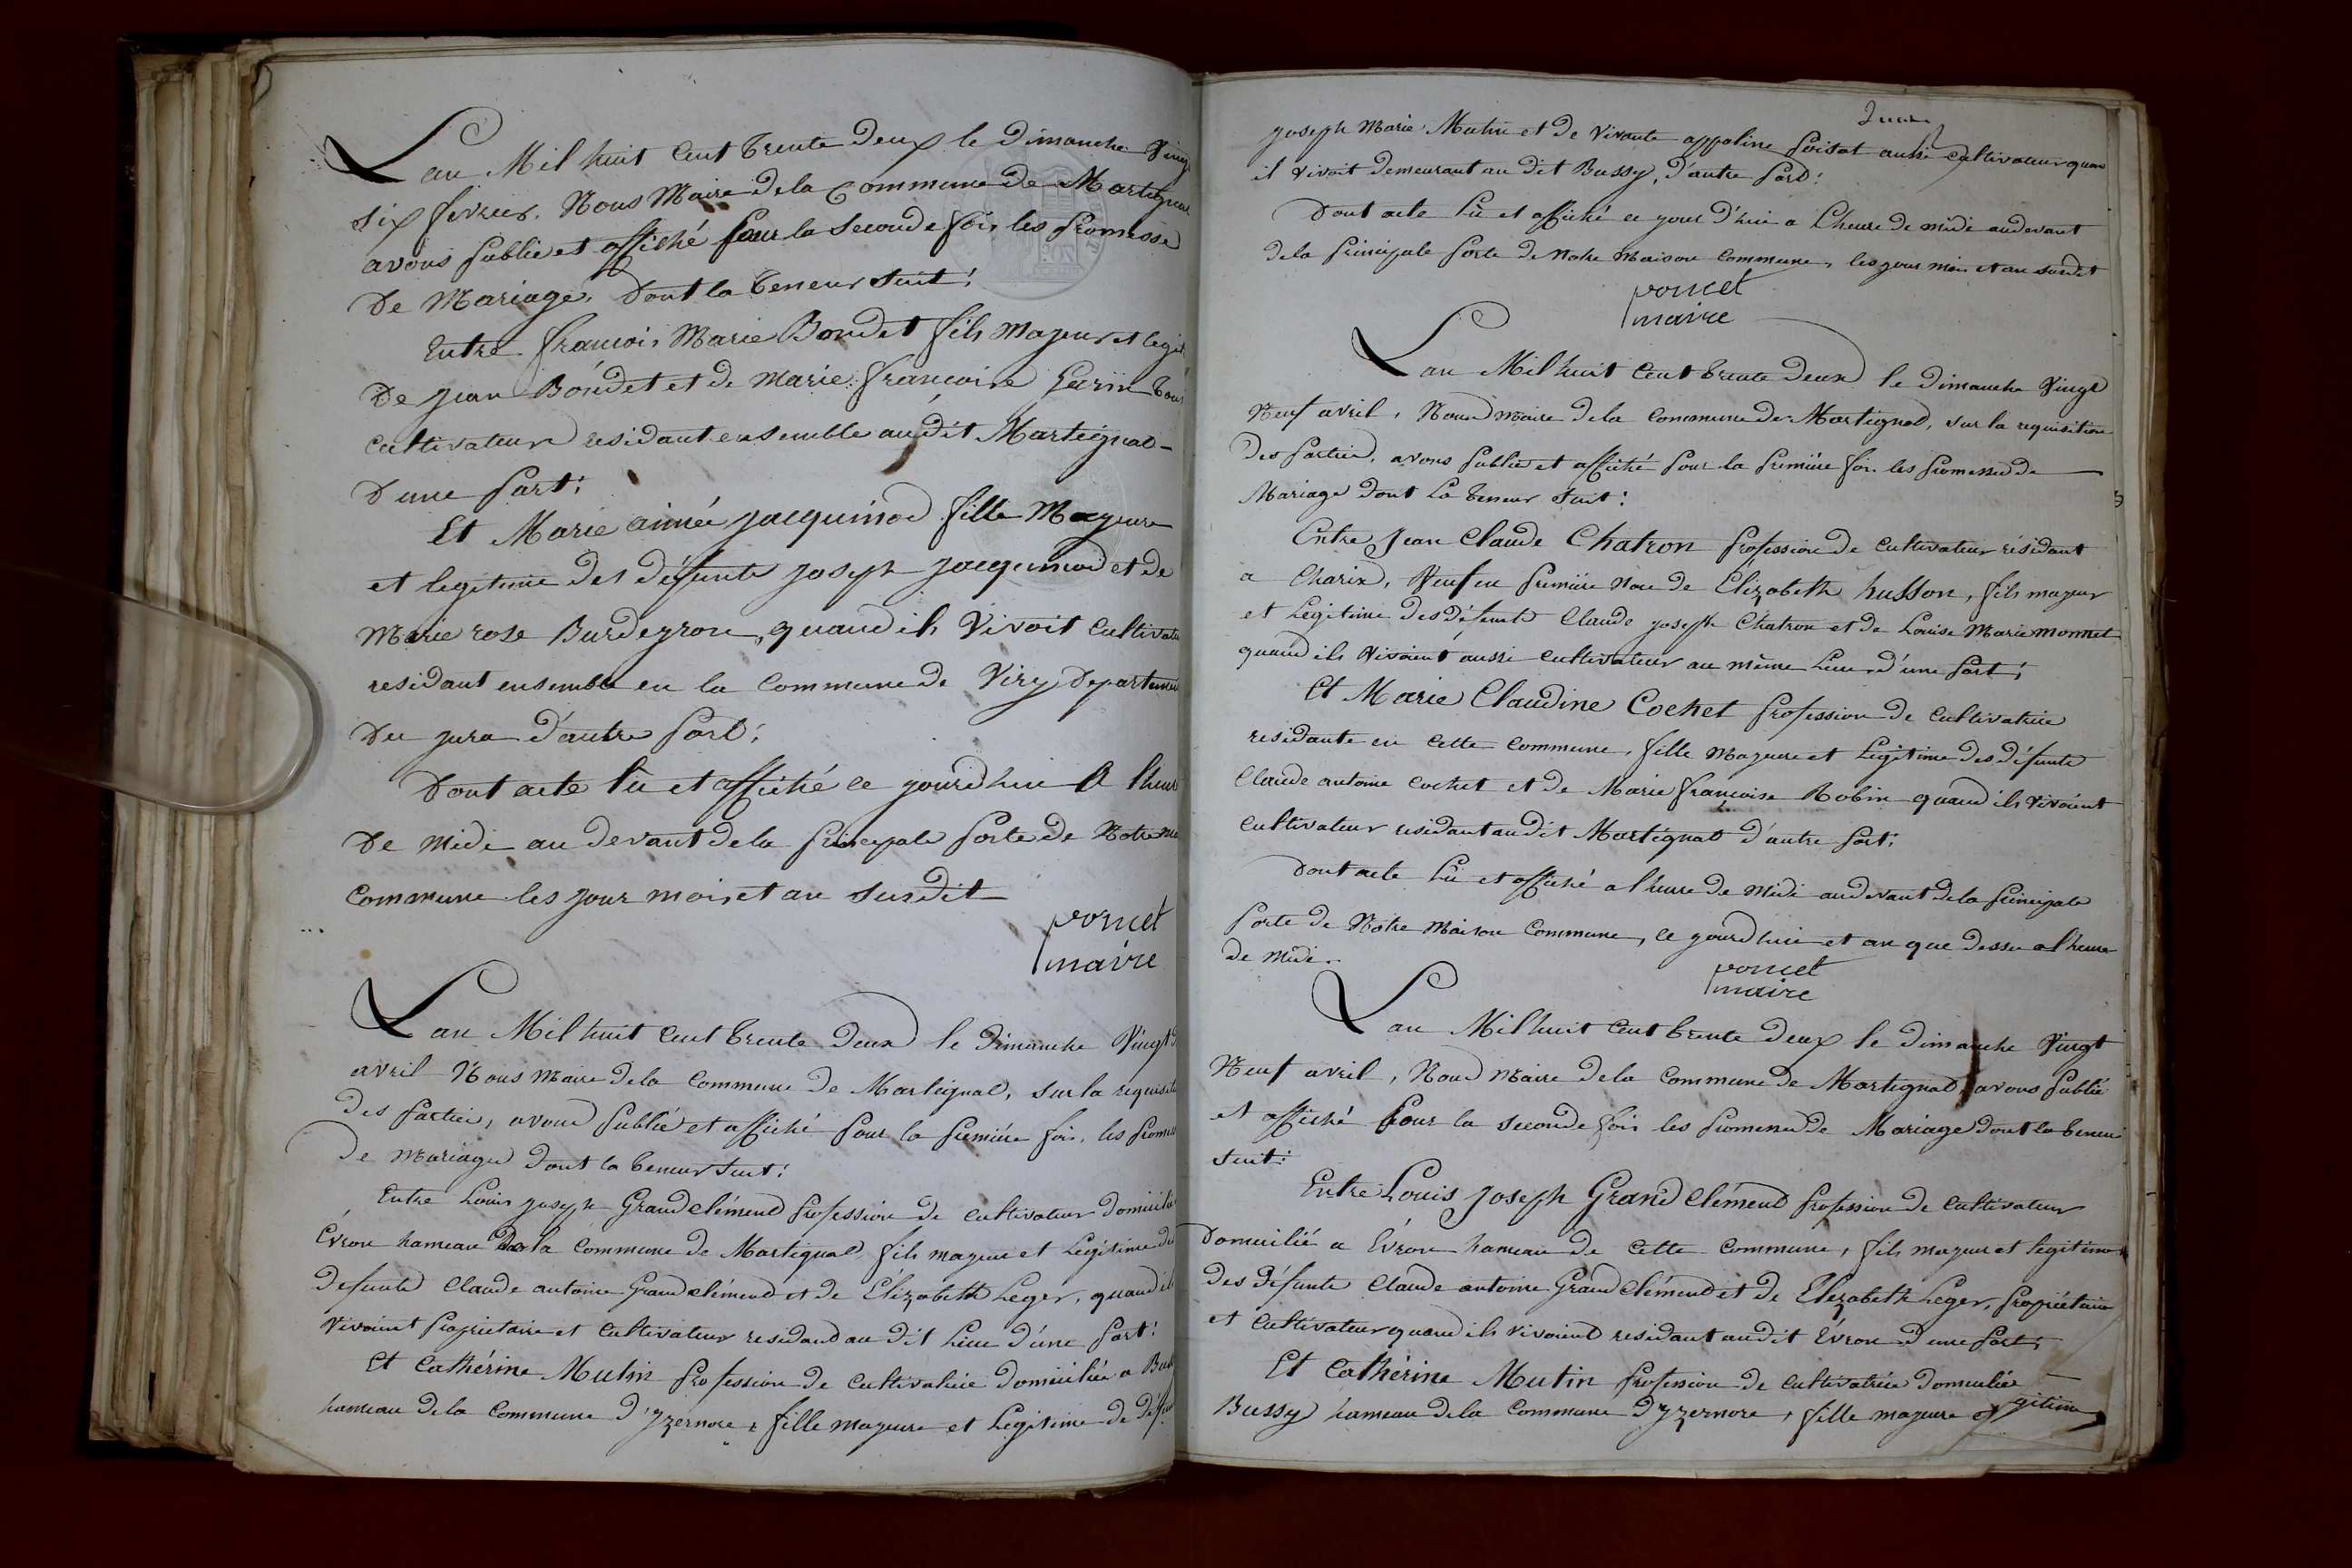 L'an Mil huit Cent trente deux le dimanche Vingt
six fevrier. Nous Maire de la Commune de Martignat
avons publié et affiché pour la seconde fois les promesse
de Mariage, dont la teneur suit:
Entre françois Marie Bondet fils majeur et legit
de jean Bondet et de Marie françoise Gariin tous
cultivateur residant ensemble audit Martignat
d'une part:
Et Marie aimée jacquinod fille Majeure
et legitime des défunts joseph jacquinod et de
Marie rose Burdeyron, quand ils Vivoit Cultivateur
residant ensemble en la Commune de Viry Departement
du jura d'autre part:
Dont acte lu et affiché ce jourd'hui A l'heure
de midi au devant de la principale porte de Notre
Commune les jour mois et an susdit
poncet
maire
L'an Mil huit Cent trente deux le dimanche Vingt
avril Nous Maire de la Commune de Martignat, sur la requisit
des parties, avons publié et affiché pour la première fois, les promes
de mariage dont la teneur suit:
Entre Louis joseph Grandclément profession de cultivateur domicilié
Évron hameau de la Commune de Martignat fils majeur et Legitime des
defunts Claude antoine Grandclément et de Élizabeth Leger, quand ils
vivoient proprietaire et Cultivateur residant au dit Lieu d'une part:
Et Cathérine Mutin profession de Cultivatrice domiciliée a Bus
hameau de la Commune d'yzernore, fille majeure et Legitime de Défun
joseph Marie Mutin et de Vivante appoline poisat aussi cultivateur quand
il vivoit demeurant au dit Bussy, d'autre part:
Dont acte Lu et affiché ce jour d'hui a L'heure de midi au devant
de la principale porte de notre maison commune, les jour mois et an susdit
poncet
maire
L'an Mil huit Cent trente deux le dimanche Vingt
Neuf avril, Nous maire de la Commune de Martignat, sur la requisition
des parties, avons publié et affiché pour la première fois les promesses de
Mariage dont La teneur suit:
Entre Jean Claude Chatron profession de Cultivateur résidant
a Charix, Veuf en première Noce de Élizabeth husson, fils majeur
et Légitime des Défunts Claude joseph Chatron et de Louise Marie monnet
quand ils Vivoient aussi cultivateur au même Lieu d'une part;
Et Marie Claudine Cochet profession de Cultivatrice
residante en cette Commune, fille Majeure et Légitime des défunts
Claude antoine cochet et de Marie françoise Robin quand ils vivoient
Cultivateur residant audit Martignat d'autre part:
Dont acte Lu et affiché a l'heure de midi au devant de la principale
porte de Notre Maison Commune, ce jourd'hui et an que dessu a l'heure
de midi.
poncet
maire
L'an Mil huit Cent trente deux le dimanche Vingt
Neuf avril, Nous Maire de la Commune de Martignat, avons publié
et affiché pour la seconde fois les promesses de Mariage dont la teneur
suit:
Entre Louis joseph Grand Clément profession de Cultivateur
domicilié a Évron hameau de cette commune, fils majeur et legitime
des Défunts Claude antoine Grand Clément et de Elezabeth Leger, propriétaire
et Cultivateur quand ils vivoient residant audit Évron d'une part:
Et Cathérine Mutin profession de Cultivatrice domiciliée
Bussy hameau de la Commune d'yzernore, fille majeure et gitime